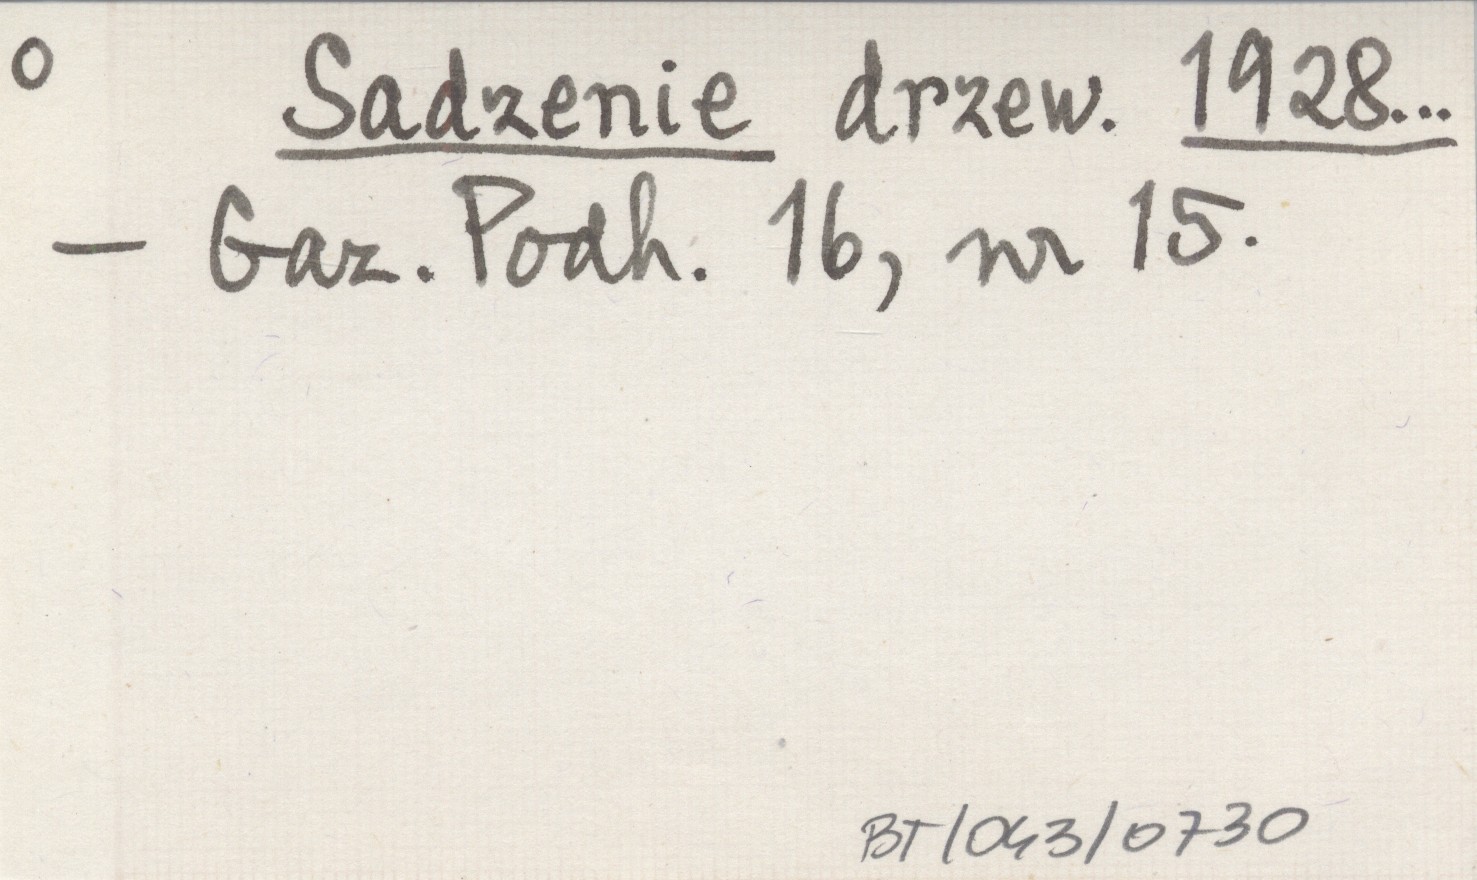 o Sadzenie drzew. 1928...
— Gaz. Podh. 16, nr 15.
BT/043/0730